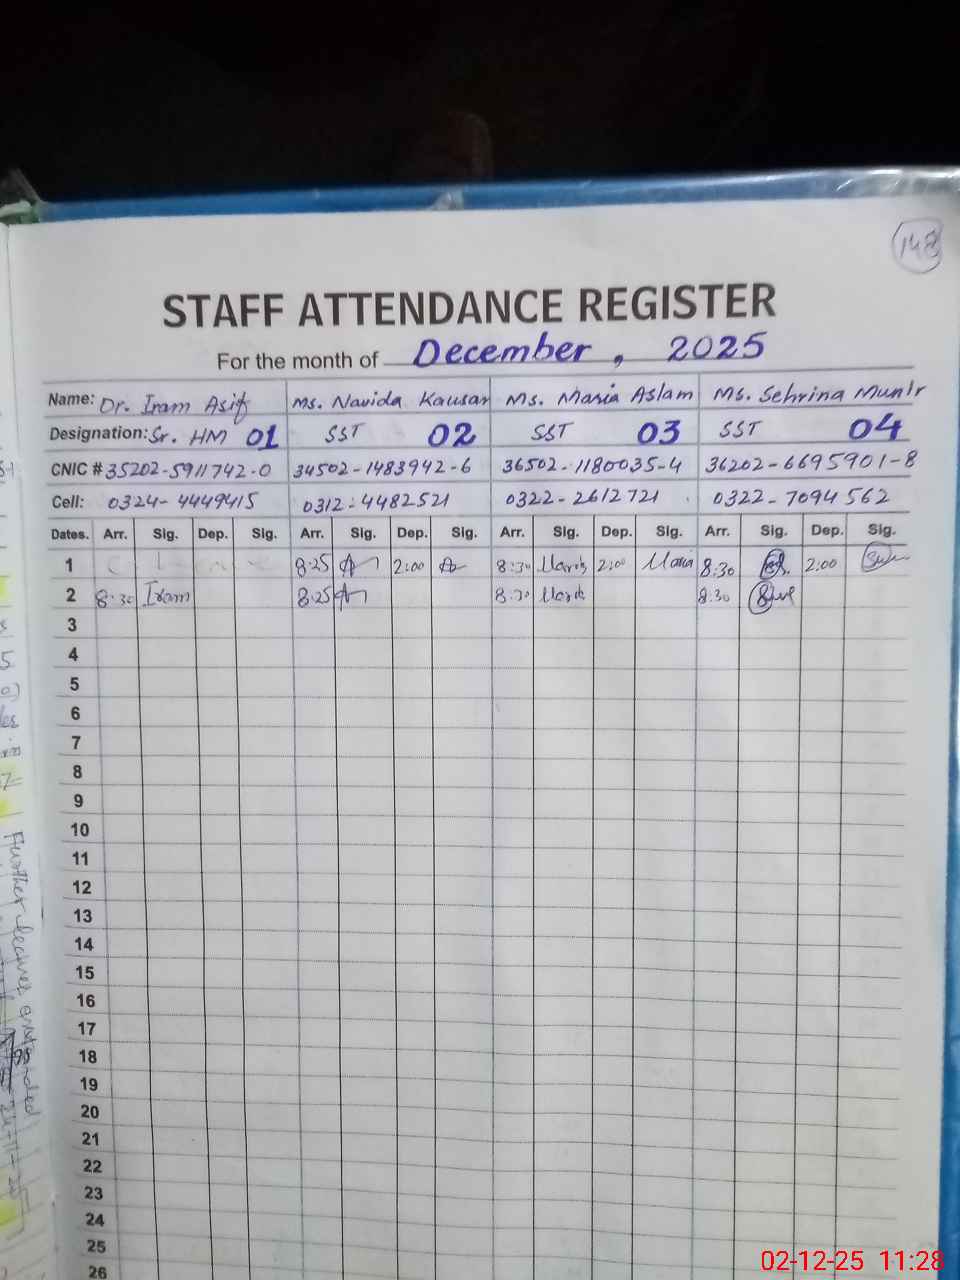 148
STAFF ATTENDANCE REGISTER
For the month of December, 2025
Name: Dr. Iram Asif Ms. Navida Kausar Ms. Maria Aslam Ms. Sehrina Munir
Designation: Sr. HM 01 SST 02 SST 03 SST 04
CNIC # 35202-5911742-0 34502-1483942-6 36502-1180035-4 36202-6695901-8
Cell: 0324-4449415 0312-4482521 0322-2612721 0322-7094562
Dates. Arr. Sig. Dep. Sig. Arr. Sig. Dep. Sig. Arr. Sig. Dep. Sig. Arr. Sig. Dep. Sig.
1 8:25 2:00 8:30 Maria 2:00 Maria 8:30 2:00
2 8:30 Iram 8:25 8:30 Maria 8:30
3
4
5
6
7
8
9
10
11
12
13
14
15
16
17
18
19
20
21
22
23
24
25
26
Further leaves
02-12-25 11:28